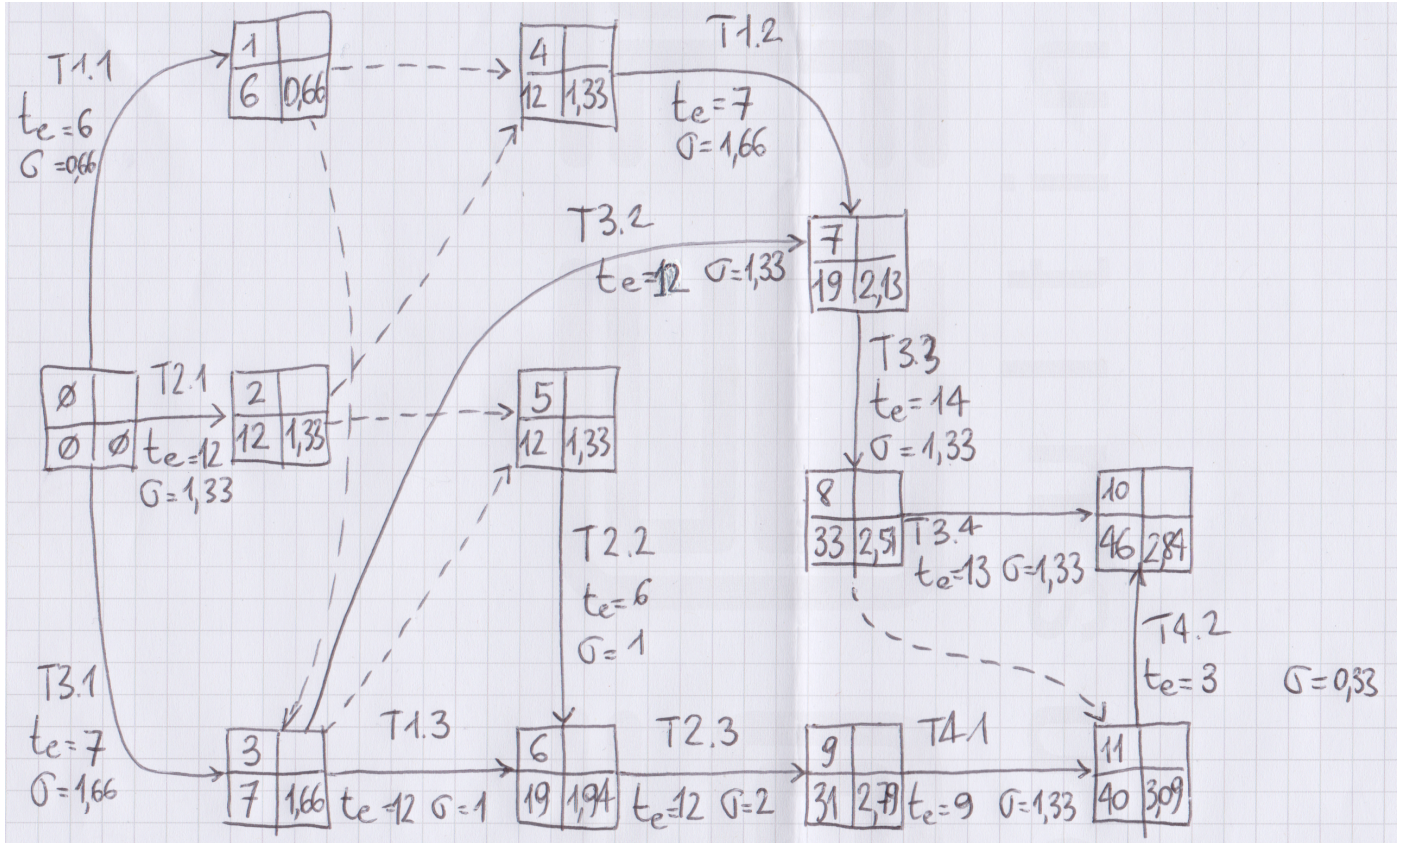 T1.1
te=6
σ=0,66
1
6 0,66
4
12 1,33
T1.2
te=7
σ=1,66
T3.2
te=12 σ=1,33
7
19 2,13
Ø
Ø Ø
T2.1
te=12
σ=1,33
2
12 1,33
5
12 1,33
T3.3
te=14
σ=1,33
8
33 2,51
T3.4
te=13 σ=1,33
10
46 2,84
T2.2
te=6
σ=1
T4.2
te=3 σ=0,33
T3.1
te=7
σ=1,66
3
7 1,66
T1.3
te=12 σ=1
6
19 1,94
T2.3
te=12 σ=2
9
31 2,79
T4.1
te=9 σ=1,33
11
40 3,09